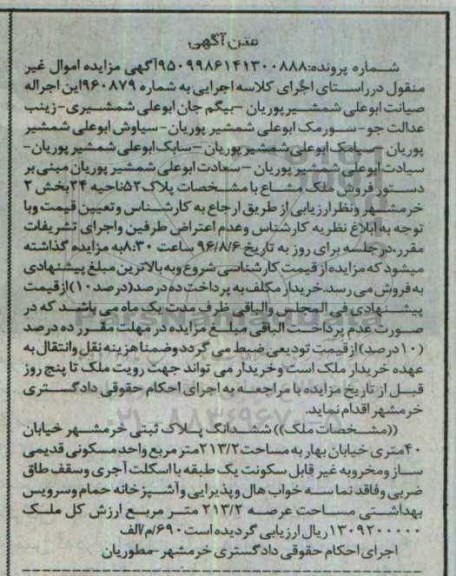 متن آگهی
شماره پرونده:۹۵۰۹۹۸۶۱۴۱۳۰۰۸۸۸آگهی مزایده اموال غیر
منقول درراستای اجرای کلاسه اجرایی به شماره ۹۶۰۸۷۹این اجراله
صیانت ابوعلی شمشیرپوریان -بیگم جان ابوعلی شمشیری-زینب
عدالت جو-سورمک ابوعلی شمشیر پوریان-سیاوش ابوعلی شمشیر
پوریان -سیامک ابوعلی شمشیر پوریان -سابک ابوعلی شمشیر پوریان-
سیادت ابوعلی شمشیر پوریان -سعادت ابوعلی شمشیر پوریان مبنی بر
دستور فروش ملک مشاع با مشخصات پلاک ۵۲ناحیه ۲۴بخش ۲
خرمشهر ونظر ارزیابی از طریق ارجاع به کارشناس وتعیین قیمت وبا
توجه به ابلاغ نظریه کارشناس وعدم اعتراض طرفین واجرای تشریفات
مقرردرجلسه برای روز به تاریخ ۹۶/۸/۶ ساعت ۸:۳۰به مزایده گذاشته
میشود که مزایده از قیمت کارشناسی شروع وبه بالاترین مبلغ پیشنهادی
به فروش می رسد.خریدار مکلف به پرداخت ده درصد(درصد۱۰)ازقیمت
پیشنهادی فی المجلس والباقی ظرف مدت یک ماه می باشد که در
صورت عدم پرداخت الباقی مبلغ مزایده در مهلت مقرر ده درصد
(۱۰درصد)ازقیمت تودیعی ضبط می گرددوضمنا هزینه نقل وانتقال به
عهده خریدار ملک است وخریدار می تواند جهت رویت ملک تا پنج روز
قبل از تاریخ مزایده با مراجعه به اجرای احکام حقوقی دادگستری
خرمشهر اقدام نماید.
((مشخصات ملک))ششدانگ پلاک ثبتی خرمشهر خیابان
۴۰متری خیابان بهار به مساحت۲۱۳/۲متر مربع واحد مسکونی قدیمی
ساز ومخروبه غیر قابل سکونت یک طبقه با اسکلت آجری وسقف طاق
ضربی وفاقد نما سه خواب هال وپذیرایی وآشپزخانه حمام وسرویس
بهداشتی مساحت عرصه ۲۱۳/۲ متر مربع ارزش کل ملک
۱۳۰۹۲۰۰۰۰۰ ریال ارزیابی گردیده است۶۹۰/م/الف
اجرای احکام حقوقی دادگستری خرمشهر-مطوریان